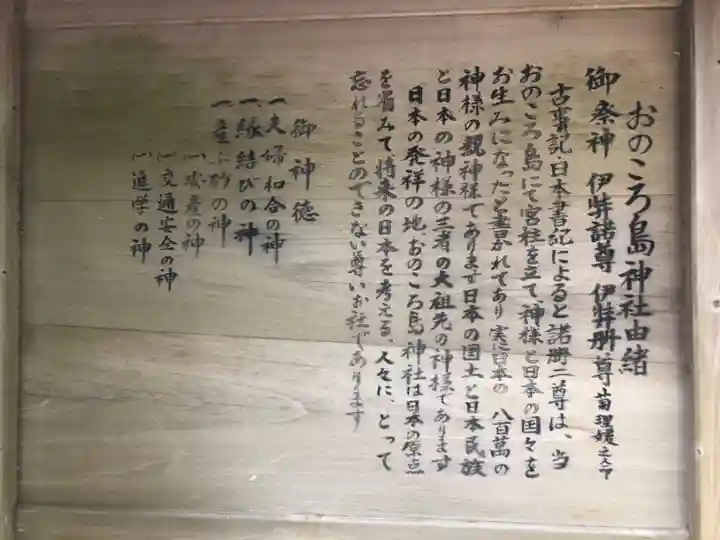 おのころ島神社由緒
御祭神 伊弉諾尊 伊弉冊尊 菊理媛之命
古事記・日本書記によると諾冊二尊は、当
おのころ島にて宮柱を立て神様と日本の国々を
お生みになったと書かれてあり実に日本の 八百萬の
神様の親神様であります日本の国土と日本民族
と日本の神様の三者の大祖先の神様であります
日本の発祥の地、おのころ島神社は日本の原点
を省みて将来の日本を考える、人々に、とって
忘れることのできない尊いお社であります
御神徳
一、夫婦和合の神
一、縁結びの神
一、産ぶ砂の神
(一)安産の神
(一)交通安全の神
(一)進学の神